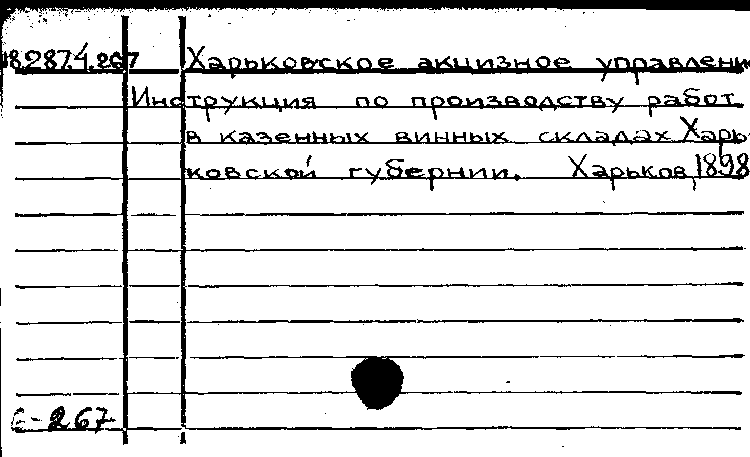 18287.4.267 Харьковское акцизное управлени
Инструкция по производству работ
в казенных винных складах Харь
ковской губернии. Харьков, 1898
6-267